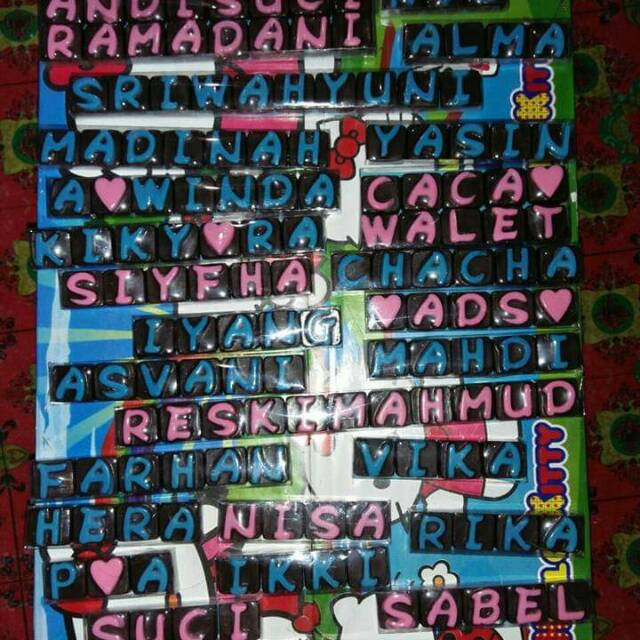 ANDISUCI
RAMADANI
ALMA
SRIWAHYUNI
MADINAH
YASIN
A♥WINDA
CACA♥
WALET
KIKY♥RA
CHACHA
SIYFHA
♥ADS♥
IYANG
MAHDI
ASVANI
RESKIMAHMUD
FARHAN
VIKA
KITTY
HERA
NISA
RIKA
P♥A
IKKI
SABEL
SUCI